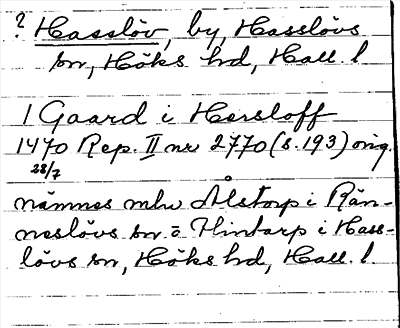 ? Hasslöv, by, Hasslövs
sn, Höks hd, Hall. l
1 Gaard i Hersloff
1470 Rep. II nr 2770 (s. 193) orig.
28/7
nämnes mlu Ålstorp i Rän-
neslövs sn o Hintarp i Hass-
lövs sn, Höks hd, Hall. l